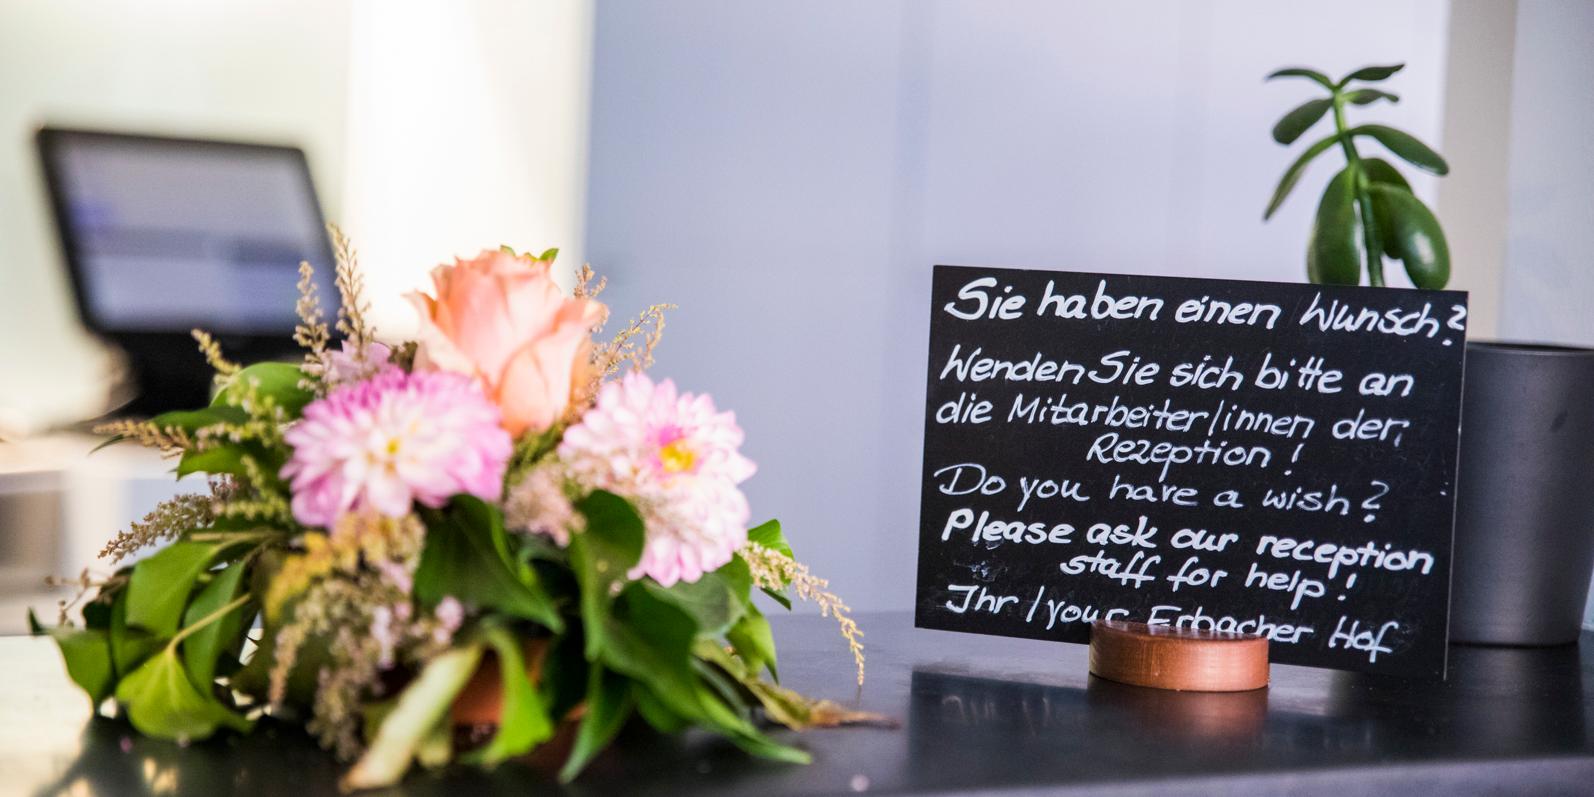 Sie haben einen Wunsch?
Wenden Sie sich bitte an
die Mitarbeiter/innen der
Rezeption!
Do you have a wish?
Please ask our reception
staff for help!
Ihr/your Erbacher Hof